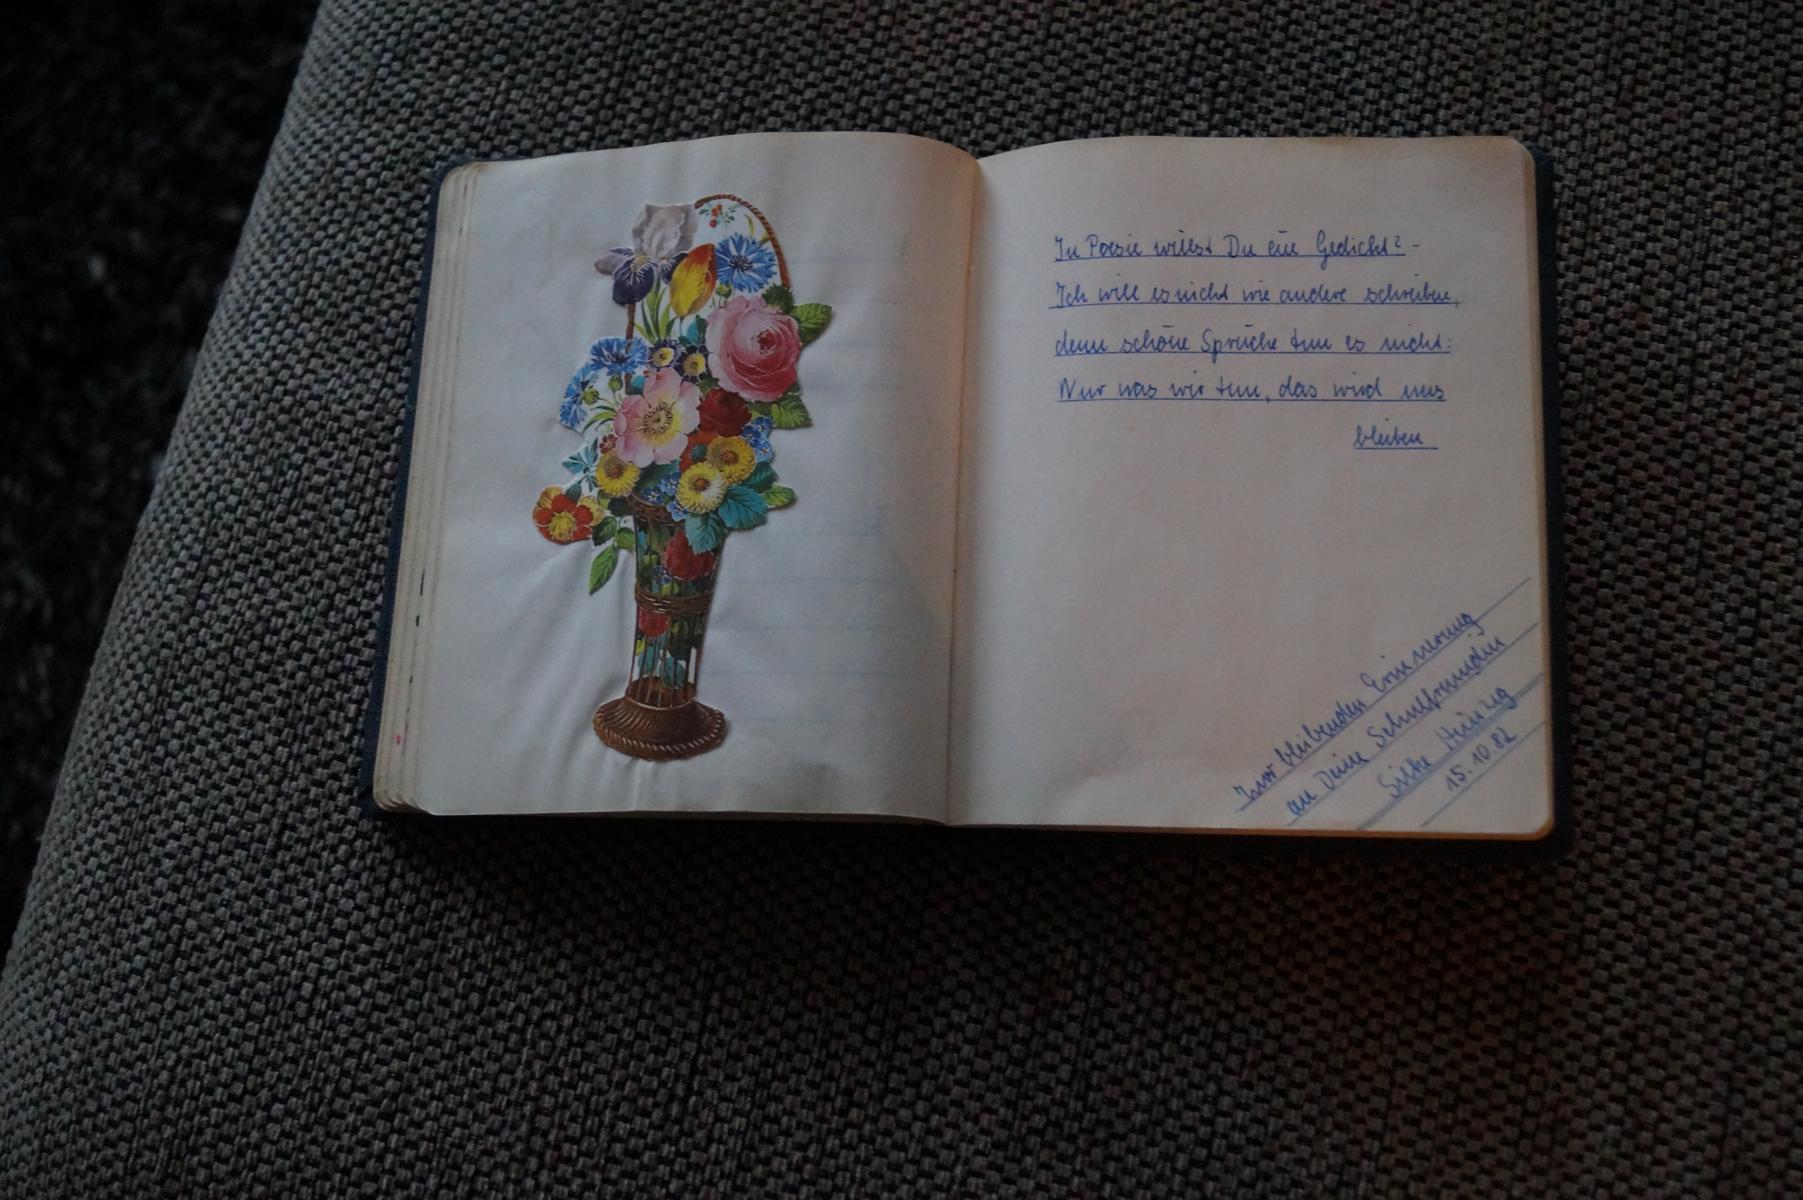 In Poesie willst Du ein Gedicht? -
Ich will es nicht wie andere schreiben,
denn schöne Sprüche tun es nicht:
Nur was wir tun, das wird uns
bleiben
Zur bleibenden Erinnerung
an Deine Schulfreundin
Silke
15.10.82